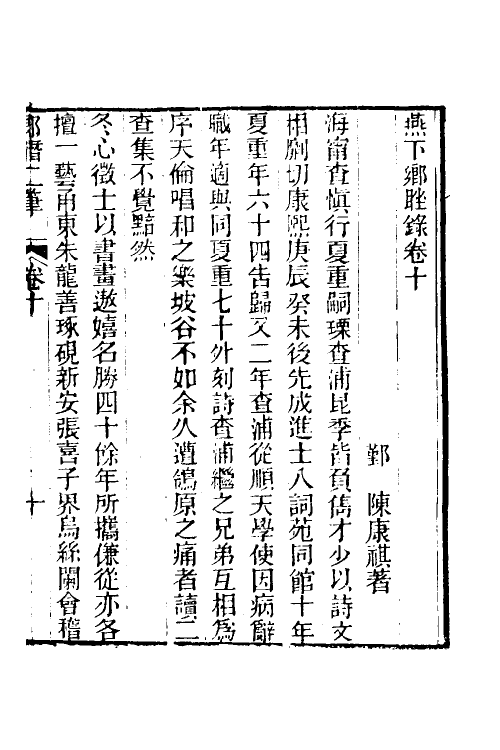 燕下鄉脞錄卷十
鄞 陳康祺著
海甯查愼行夏重嗣瑮查浦昆季皆負儁才少以詩文
相劘切康熙庚辰癸未後先成進士入詞苑同館十年
夏重年六十四告歸又二年查浦從順天學使因病辭
職年適與同夏重七十外刻詩查浦繼之兄弟互相爲
序天倫唱和之樂坡谷不如余久遭鴿原之痛者讀二
查集不覺黯然
冬心徵士以書畫遨嬉名勝四十餘年所攜傔從亦各
擅一藝甬東朱龍善琢硯新安張喜子界烏絲闌會稽
郎潛二筆 卷十 十